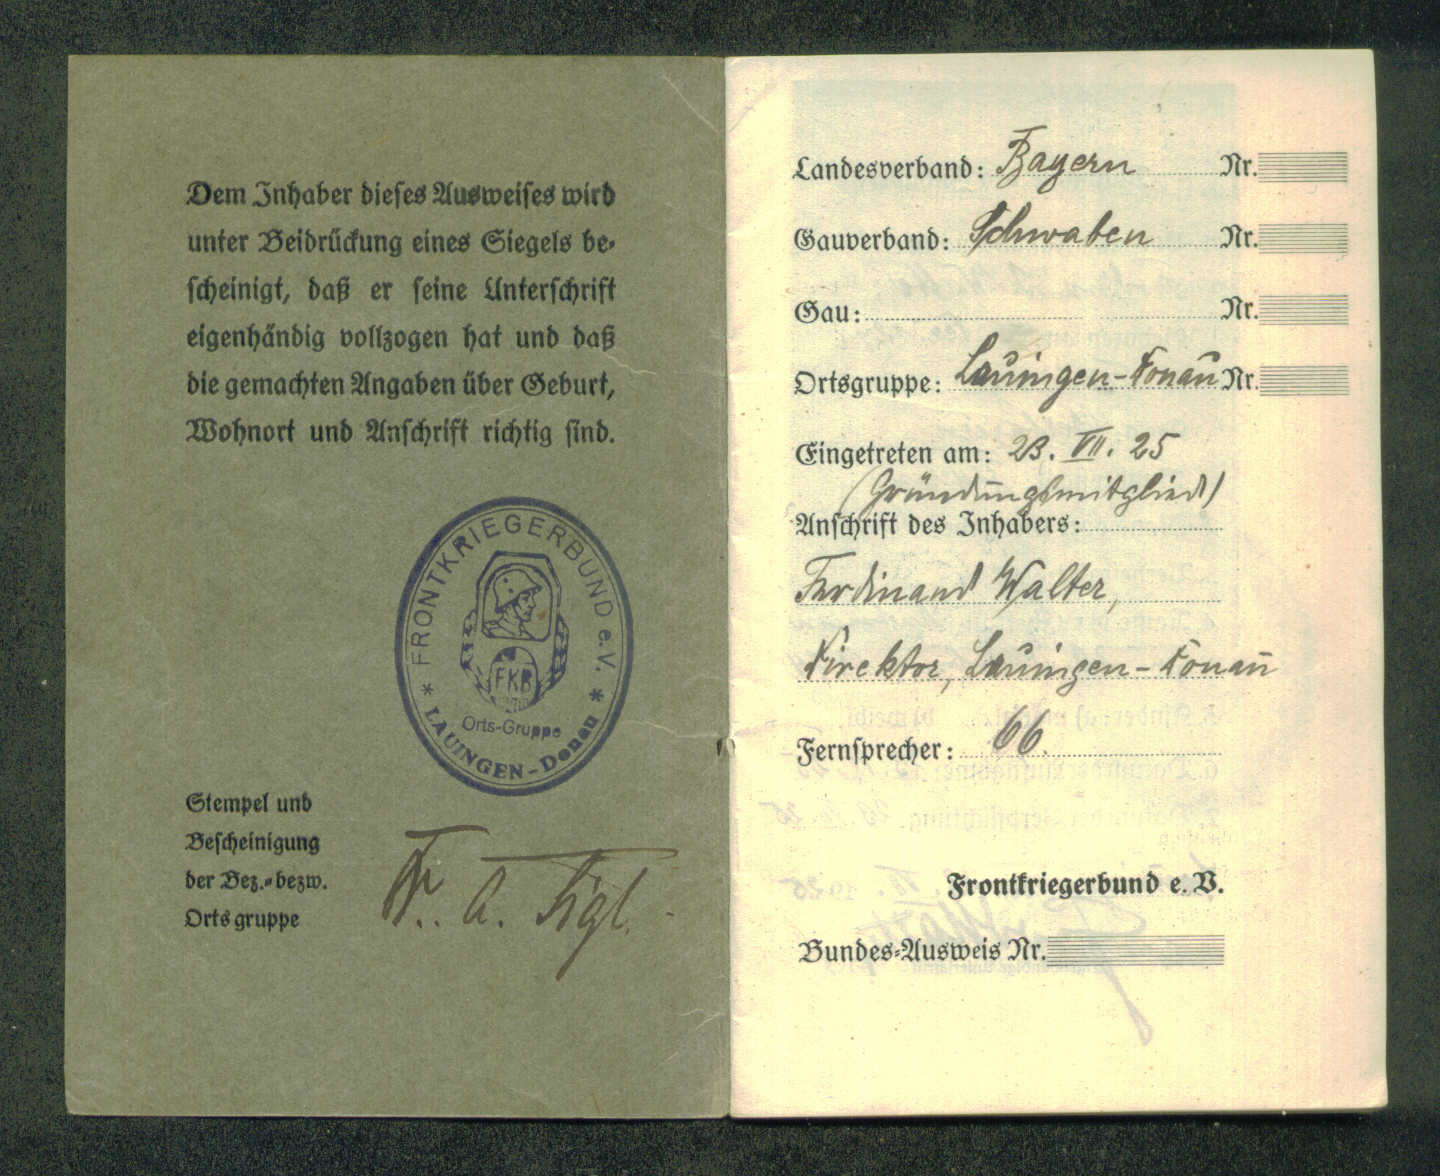 Dem Inhaber dieses Ausweises wird
unter Beidrückung eines Siegels be-
scheinigt, daß er seine Unterschrift
eigenhändig vollzogen hat und daß
die gemachten Angaben über Geburt,
Wohnort und Anschrift richtig sind.
* FRONTKRIEGERBUND e.V. *
FKB
Orts-Gruppe
LAUINGEN-Donau
Stempel und
Bescheinigung
der Bez.- bezw.
Ortsgruppe
Landesverband: Bayern Nr.
Gauverband: Schwaben Nr.
Gau: Nr.
Ortsgruppe: Lauingen-Donau Nr.
Eingetreten am: 23. VII. 25
(Gründungsmitglied)
Anschrift des Inhabers:
Ferdinand Walter,
Direktor, Lauingen-Donau
Fernsprecher: 66.
Frontkriegerbund e. V.
Bundes-Ausweis Nr.